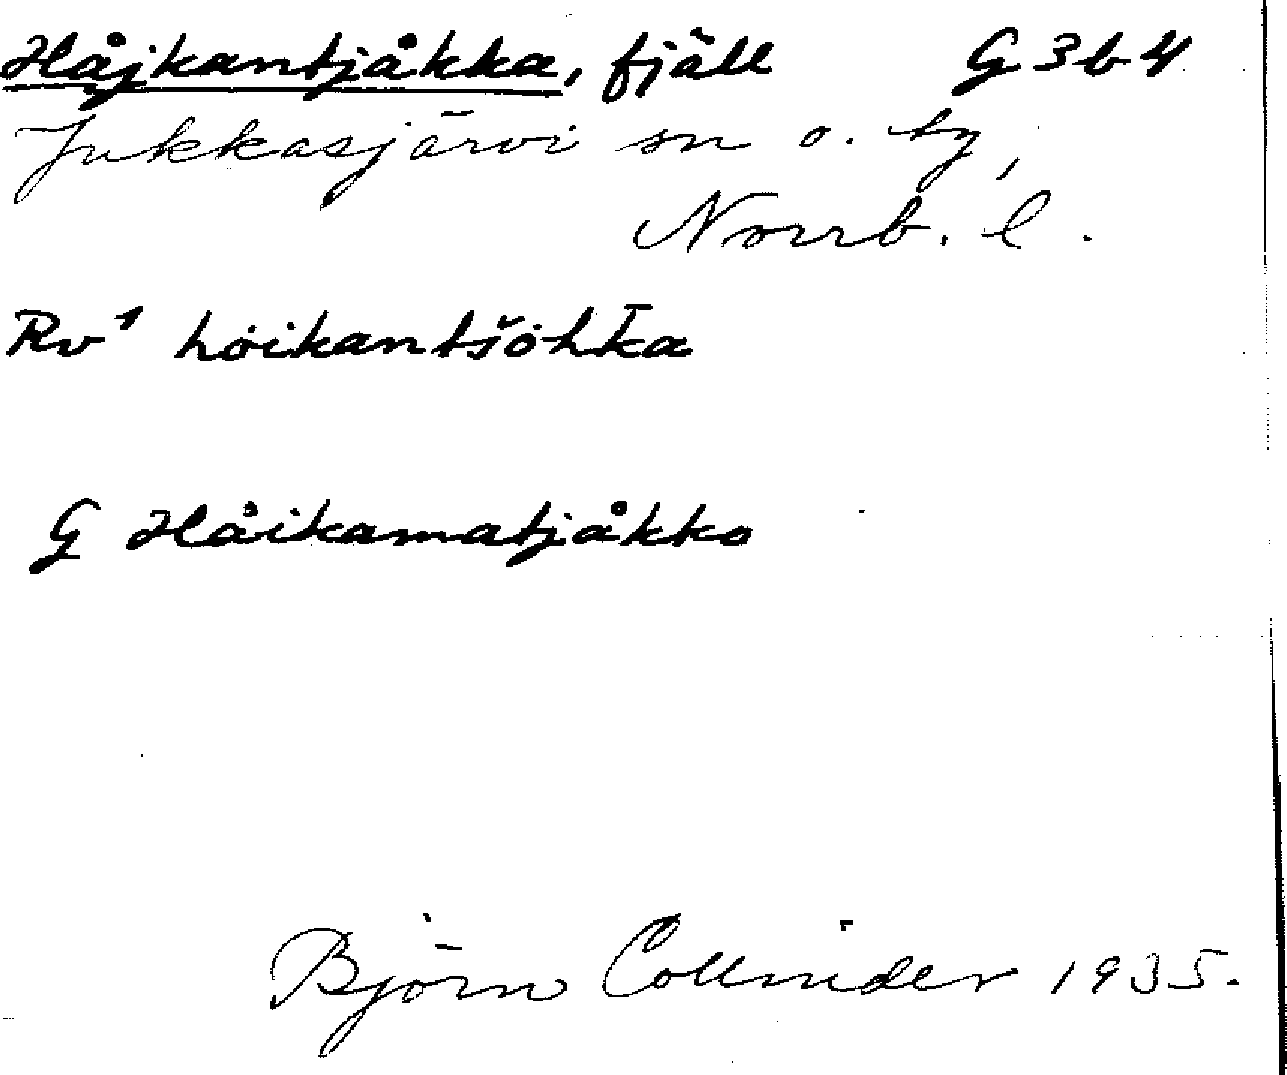 Håjkantjåkka, fjäll G3b4
Jukkasjärvi sn o. tg,
Norrb. l.
Rv¹ hoikantšohka
G Håikamatjåkko
Björn Collinder 1935.